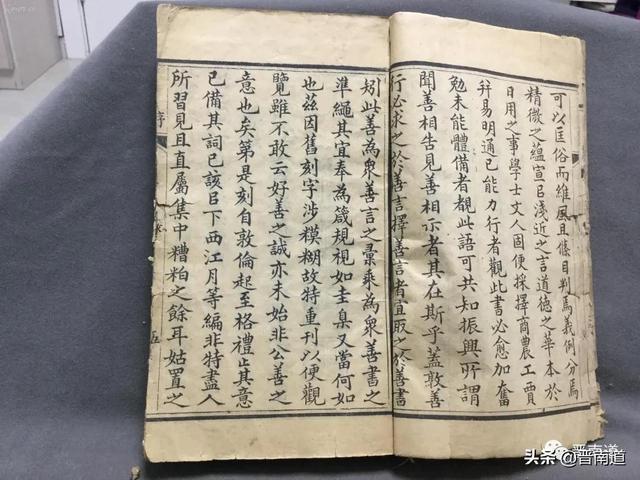 可以匡俗而維風且條目判焉義例分焉
精微之蘊宣㠯淺近之言道德之華本於
日用之事學士文人固便採擇商農工賈
幷易明通已能力行者觀此書必愈加奮
勉未能體備者覩此語可共知振興所謂
聞善相告見善相示者其在斯乎蓋敦善
行必求之於善言擇善言者宜取之於善書
矧此善為衆善言之彙乘為衆善書之
準繩其宜奉為箴規視如圭臬又當何如
也茲因舊刻字涉糢糊故特重刊以便觀
覽雖不敢云好善之誠亦未始非公善之
意也矣第是刻自敦倫起至格禮止其意
已備其詞已該㠯下西江月等編非特盡人
所習見且直屬集中糟粕之餘耳姑置之
序
五
晋南道
头条 @晋南道